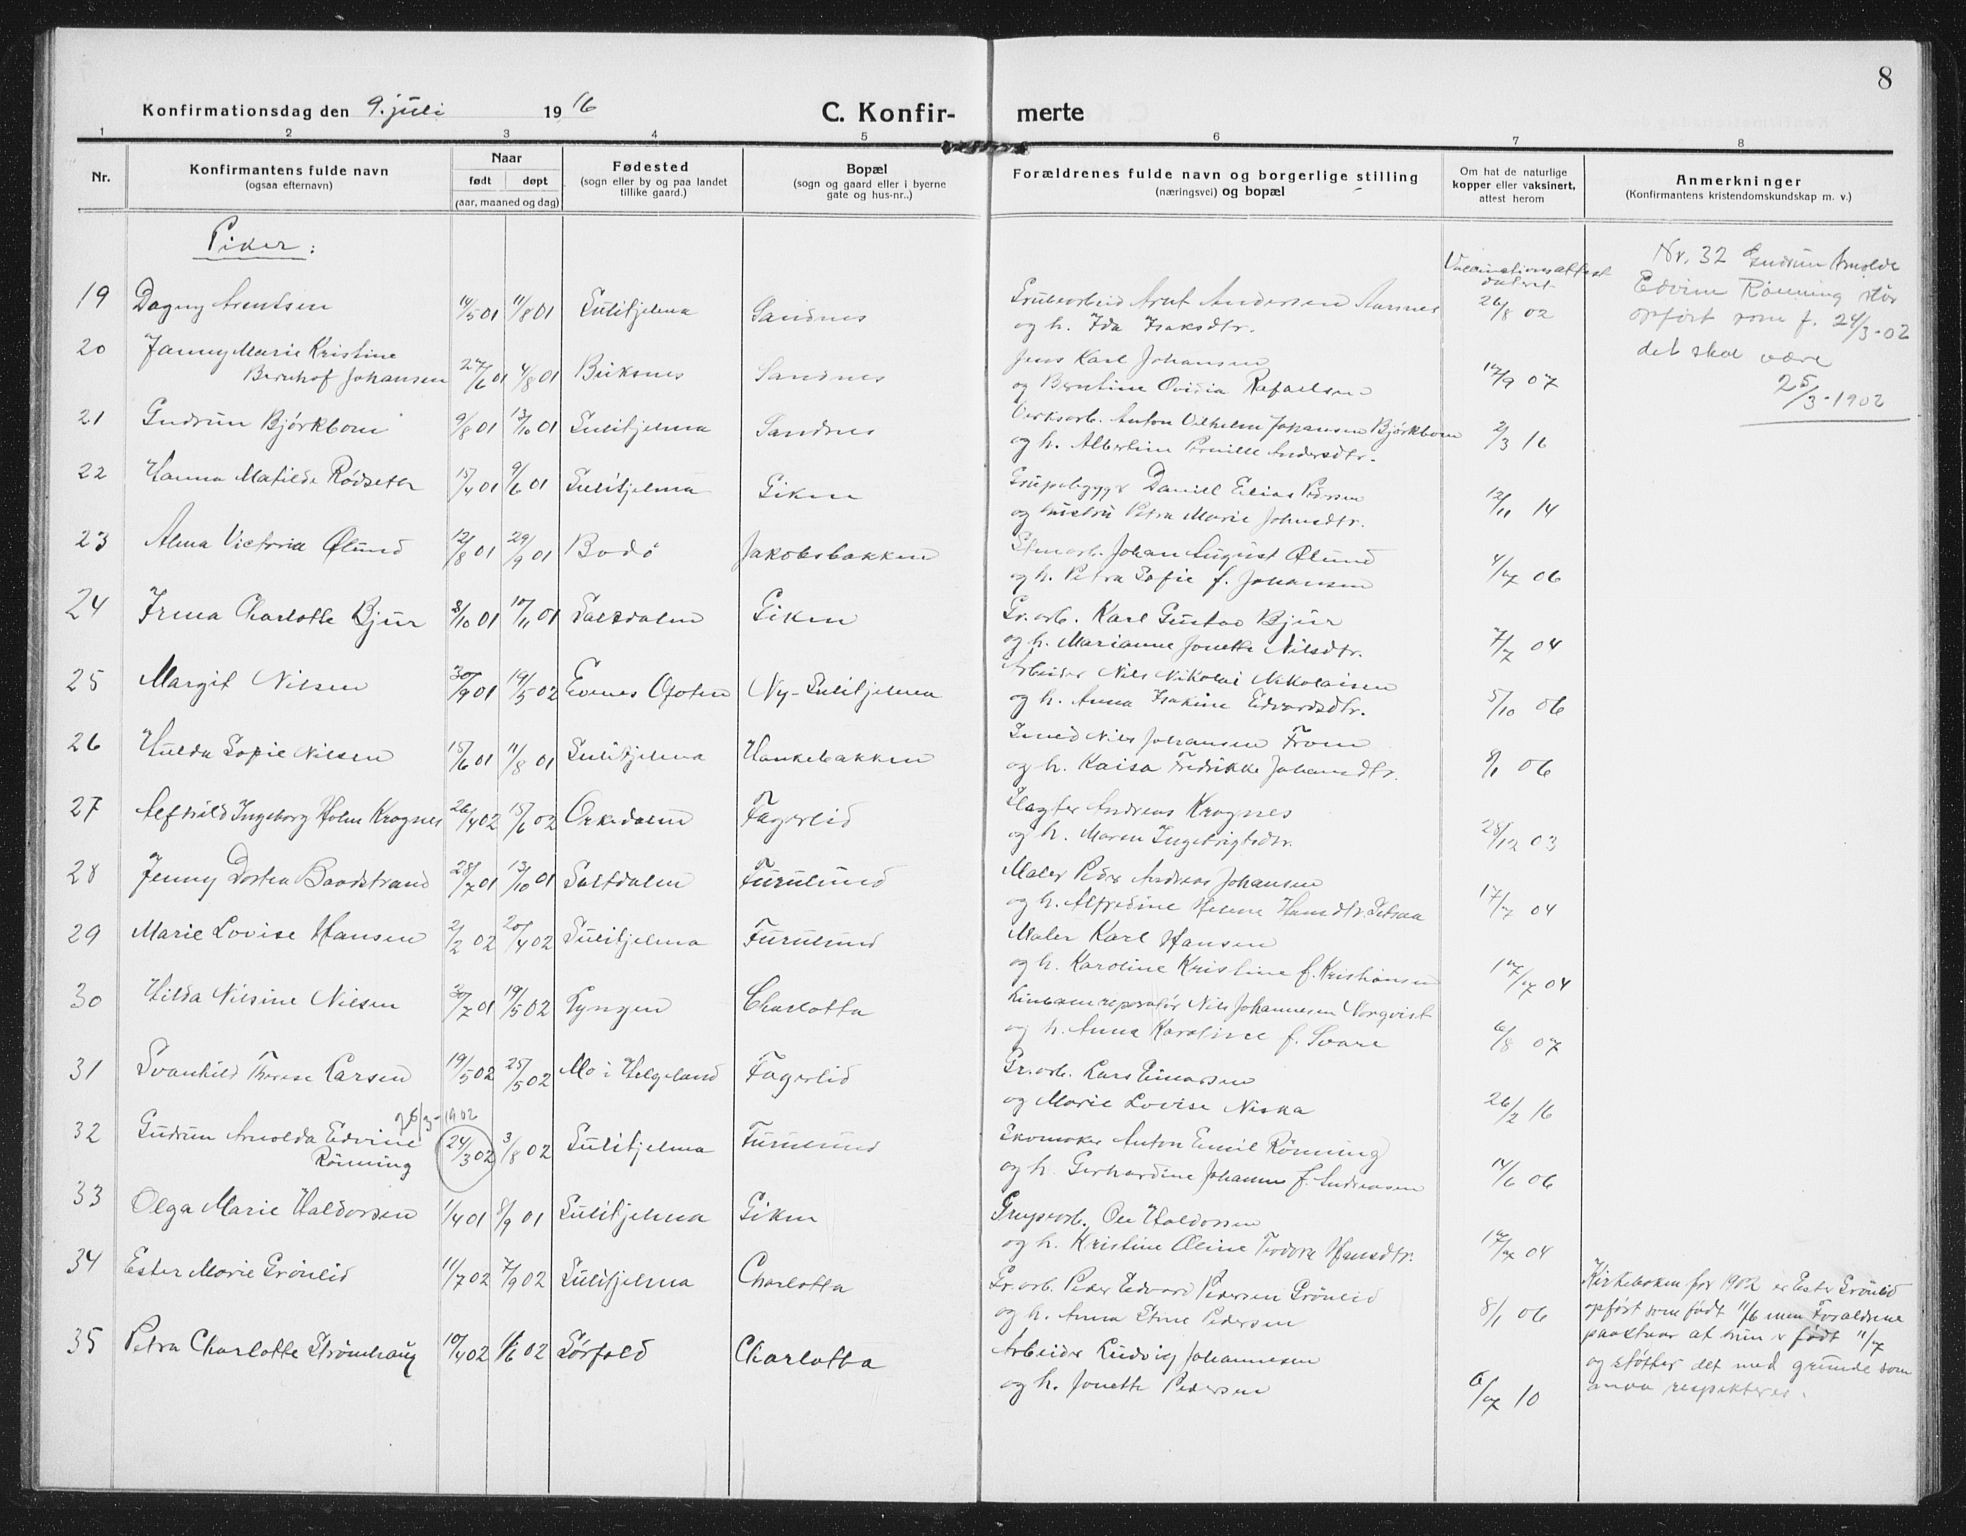 8
Konfirmationsdag den 9. juli 1916 C. Konfirmerte
1 2 3 4 5 6 7 8
Nr.
Konfirmantens fulde navn
(ogsaa efternavn)
Naar
født døpt
(aar, maaned og dag)
Fødested
(sogn eller by og paa landet
tillike gaard.)
Bopæl
(sogn og gaard eller i byerne
gate og hus-nr..)
Forældrenes fulde navn og borgerlige stilling
(næringsvei) og bopæl
Om hat de naturlige
kopper eller vaksinert,
attest herom
Anmerkninger
(Konfirmantens kristendomskundskap m. v.)
Piker:
Vaccinationsattest
datert
19 Dagny Arentsen 14/5 01 11/8 01 Sulitjelma Sandnes Grubearbeid Arnt Andersen Aasnes 26/8 02
og h. Ida Isaksdtr.
20 Fanny Marie Kristine
Bernhof Johansen 27/6 01 4/8 01 Sandnes Karl Johansen 17/9 07
og Berntine Ovidia Rafaelsen
21 Gudrun Bjørkbom 9/8 01 13/10 01 Sulitjelma Sandnes Verksarb. Anton Vilhelm Johansen Bjørkbom 2/3 16
og h. Albertine Pernille Andersdtr.
22 Hanna Matilde Rødseth 15/4 01 9/6 01 Sulitjelma Giken Daniel Elias Pedersen 12/11 14
og hustru Petra Marie Johnsdtr.
23 Alma Victoria Ølund 12/8 01 29/9 01 Bodø Jakobsbakken Stenarb. Johan August Ølund 4/7 06
og h. Petra Sofie f. Johansen
24 Irma Charlotte Bjur 8/10 01 17/11 01 Saltdalen Giken Gr.arb. Karl Gustav Bjur 7/7 04
og h. Marianne Jonette Nilsdtr.
25 Margit Nilsen 30/9 01 19/5 02 Evenes Ofoten Ny-Sulitjelma Arbeider Nils Nikolai Nikolaisen 5/10 06
og h. Anna Isakine Edvardsdtr.
26 Hulda Sofie Nilsen 15/6 01 11/8 01 Sulitjelma Hankebakken Smed Nils Johansen From 9/1 06
og h. Kaisa Fredrikke Johansdtr.
27 Alfhild Ingeborg Holm Krognes 26/4 02 15/6 02 Orkedalen Fagerlid Slagter Andreas Krognes 28/12 03
og h. Maren Ingebrigtsdtr.
28 Jenny Dortea Baadstrand 28/7 01 13/10 01 Saltdalen Furulund Maler Peder Andreas Johansen 17/7 04
og h. Alfredine Helene Hansdtr. Setsaa
29 Marie Lovise Hansen 2/2 02 20/4 02 Sulitjelma Furulund Maler Karl Hansen 17/7 04
og h. Karoline Kristine f. Kristiansen
30 Hilda Nilsine Nilsen 30/7 01 19/5 02 Lyngen Charlotta Linbanereparatør Nils Johannesen Norqvist 6/8 07
og h. Anna Karoline f. Svare
31 Svanhild Therese Larsen 19/5 02 25/5 02 Mo i Helgeland Fagerlid Gr.arb. Lars Einarsen 26/2 16
og Marie Lovise Niska
25/3-1902
32 Gudrun Arnolda Edvine
Rönning 24/3 02 3/8 02 Sulitjelma Furulund Skomaker Anton Emil Rönning 14/6 06
og h. Gerhardine Johanne f. Andreasen
33 Olga Marie Haldorsen 1/4 01 8/9 01 Sulitjelma Giken Grubearb. Ole Haldorsen 17/7 04
og h. Kristine Oline Teodora Hansdtr.
34 Ester Marie Grönlid 11/7 02 7/9 02 Sulitjelma Charlotta Gr.arb. Peder Edvard Pedersen Grönlid 8/1 06
og h. Anna Stine Pedersen
35 Petra Charlotte Strömhaug 10/4 02 1/6 02 Sørfold Charlotta Arbeider Ludvig Johannesen 6/7 10
og h. Jonette Pedersen
Nr. 32 Gudrun Arnolda
Edvine Rönning står
opført som f. 24/3-02
det skal være
25/3-1902
Kirkeboken for 1902 er Ester Grönlid
opført som født 11/6 men Foraldrene
paastaar at hun er født 11/7
og støtter det med grunde som
maa respekteres.